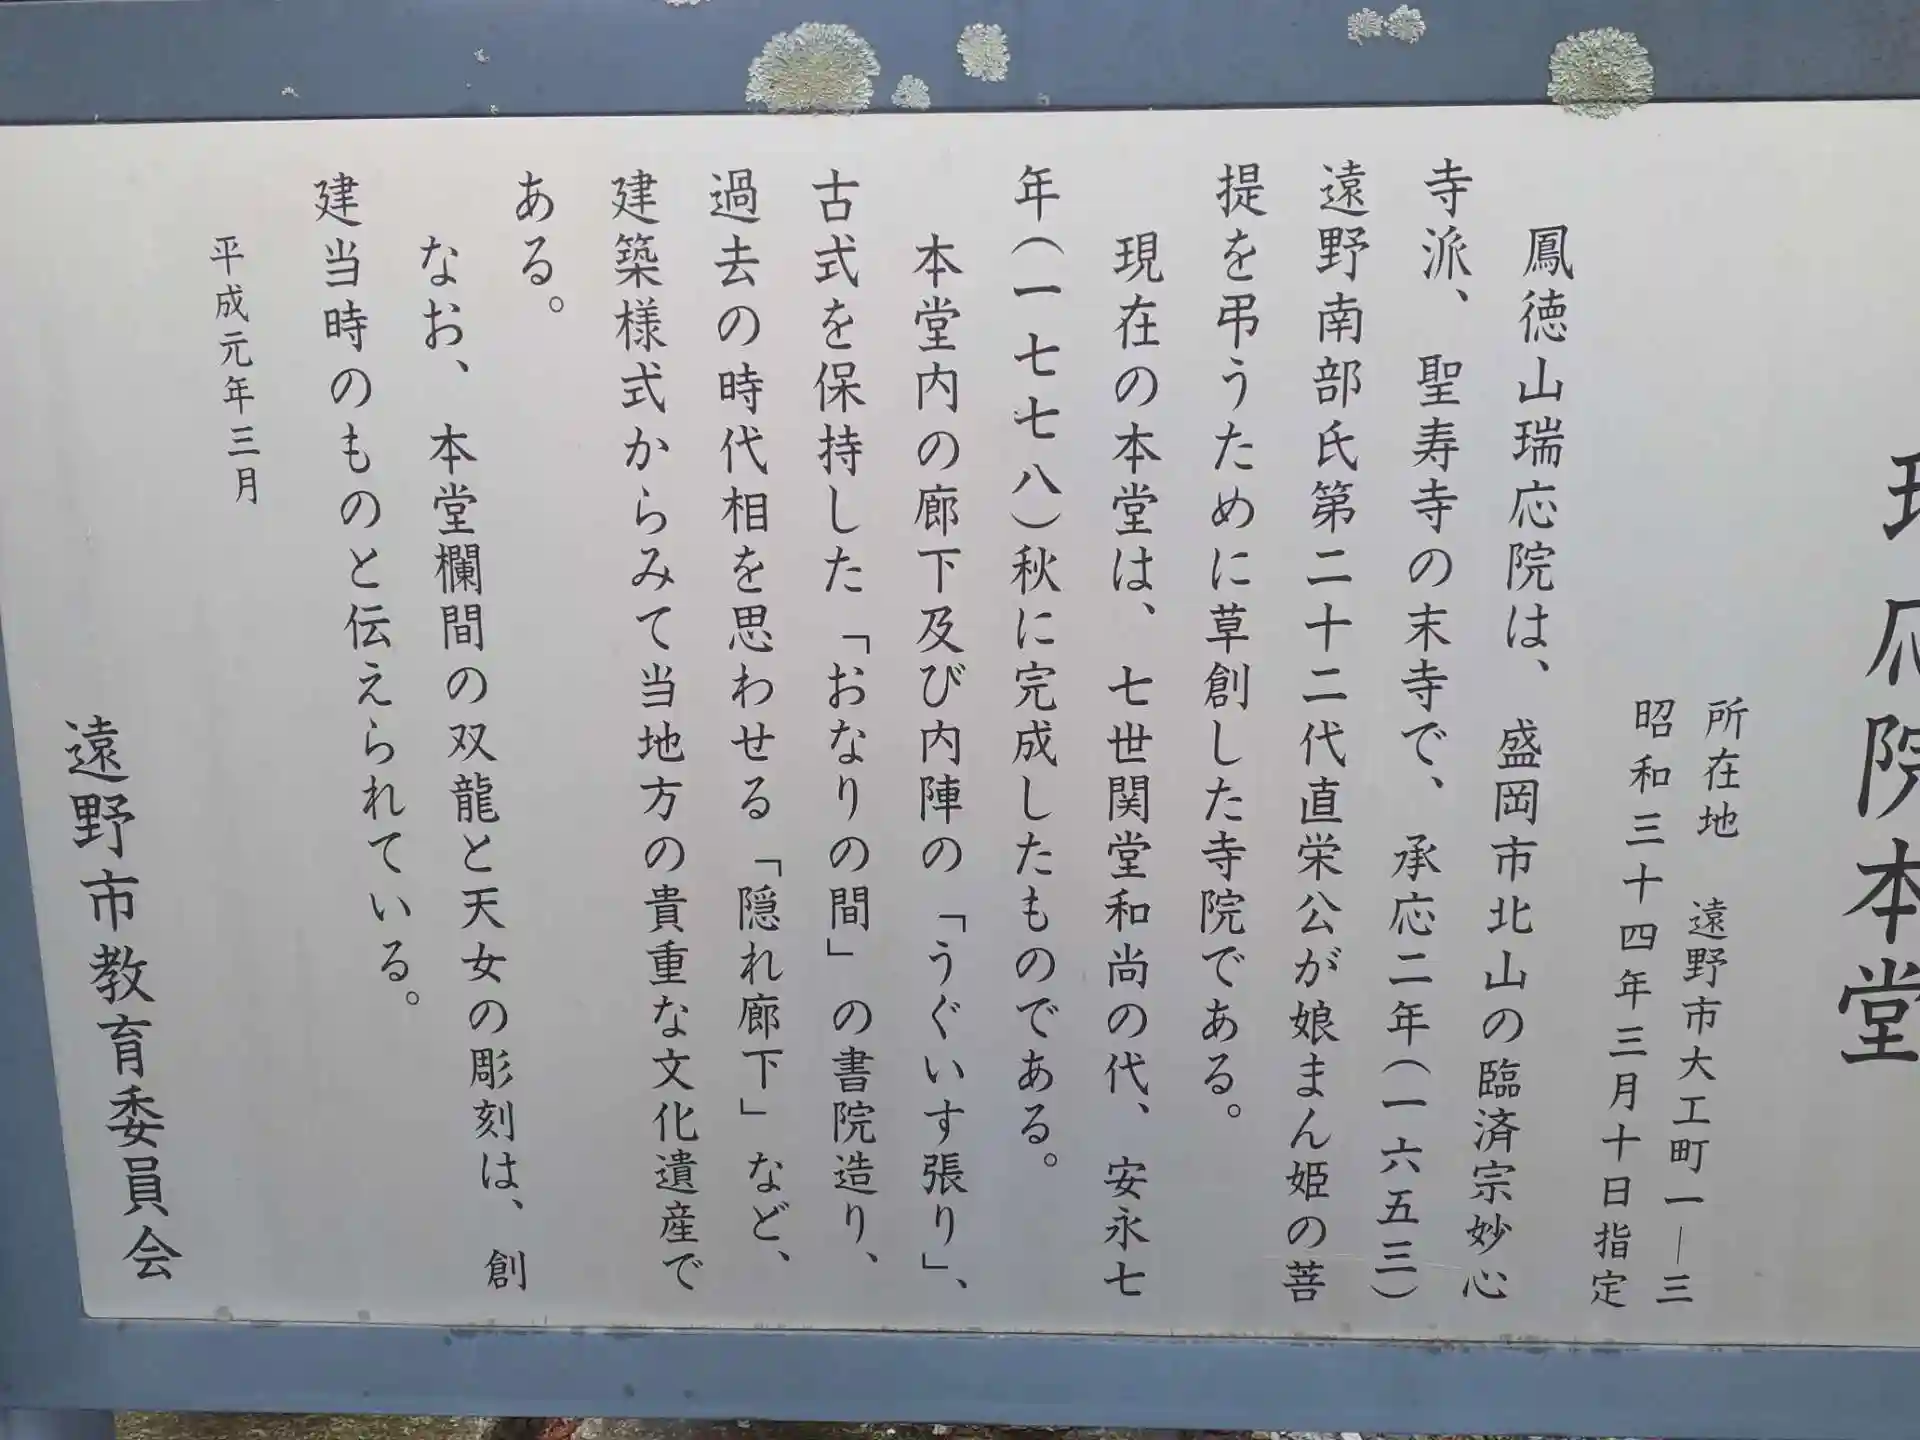 瑞応院本堂
所在地 遠野市大工町一―三
昭和三十四年三月十日指定
鳳徳山瑞応院は、盛岡市北山の臨済宗妙心
寺派、聖寿寺の末寺で、承応二年(一六五三)
遠野南部氏第二十二代直栄公が娘まん姫の菩
提を弔うために草創した寺院である。
現在の本堂は、七世関堂和尚の代、安永七
年(一七七八)秋に完成したものである。
本堂内の廊下及び内陣の「うぐいす張り」、
古式を保持した「おなりの間」の書院造り、
過去の時代相を思わせる「隠れ廊下」など、
建築様式からみて当地方の貴重な文化遺産で
ある。
なお、本堂欄間の双龍と天女の彫刻は、創
建当時のものと伝えられている。
平成元年三月
遠野市教育委員会